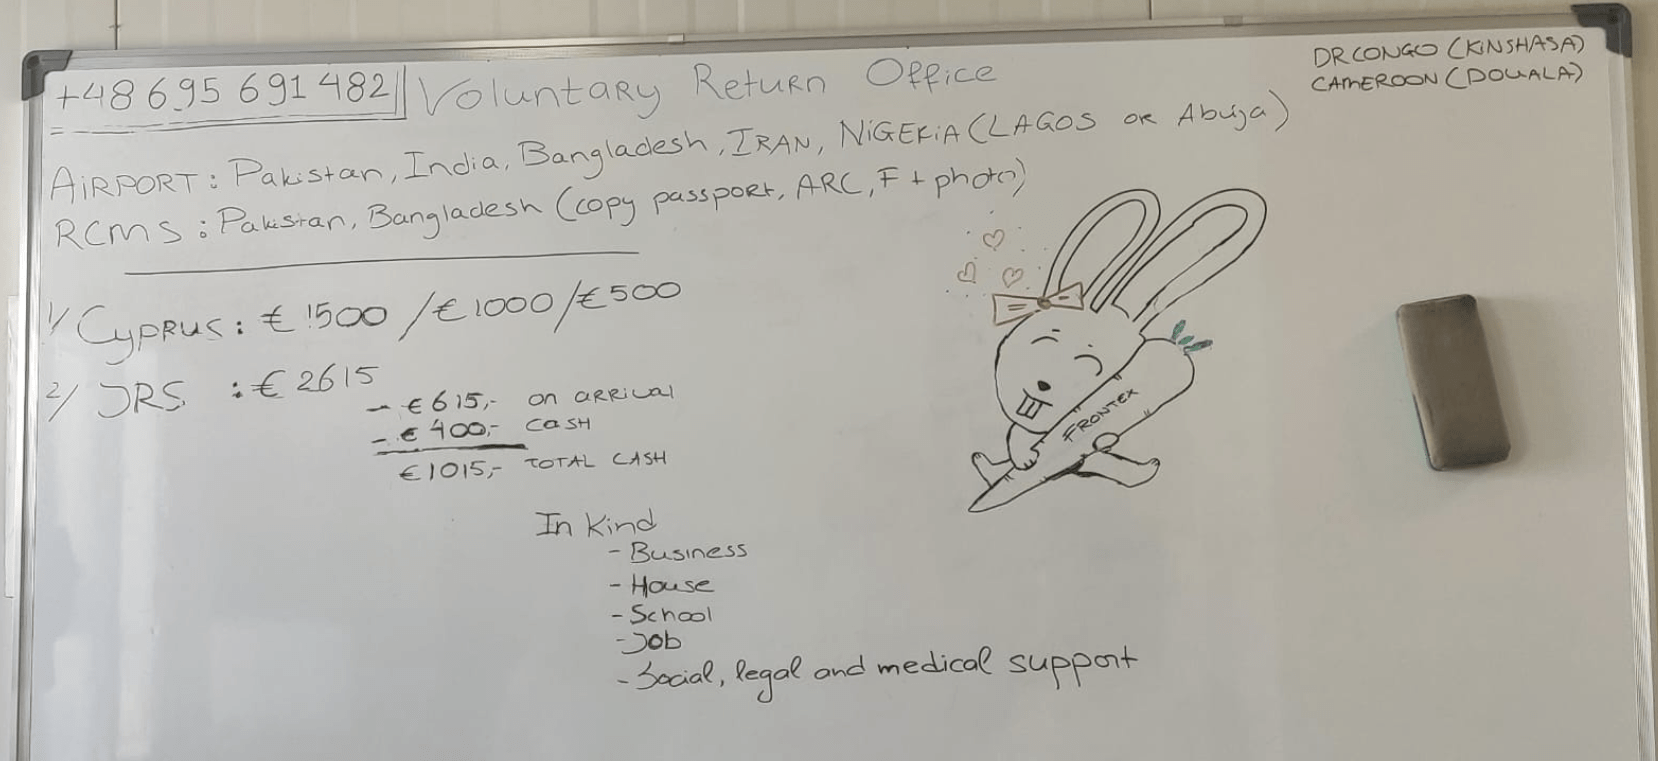 +48 695 691 482 Voluntary Return Office
DR CONGO (KINSHASA)
CAMEROON (DOUALA)
AIRPORT: Pakistan, India, Bangladesh, IRAN, NIGERIA (LAGOS OR Abuja)
RCMS: Pakistan, Bangladesh (copy passport, ARC, F + photo)
1/ CYPRUS: € 1500 / € 1000 / € 500
2/ JRS : € 2615
- € 615,- ON ARRIVAL
- € 400,- CASH
€ 1015,- TOTAL CASH
FRONTEX
In Kind
- Business
- House
- School
- Job
- Social, legal and medical support